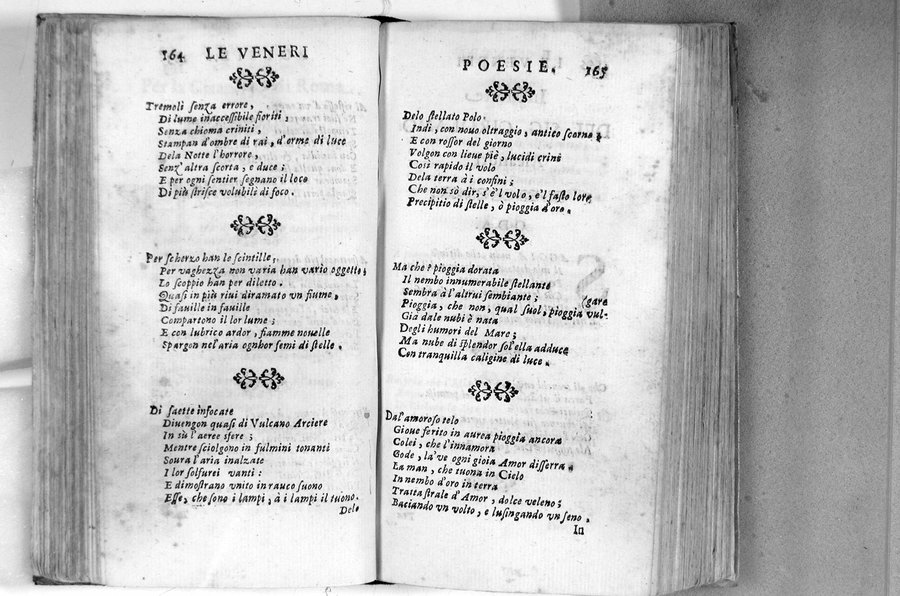 164 LE VENERI
Tremoli ſenza errore,
Di lume inacceſsibile fioriti,
Senza chioma criniti,
Stampan d'ombre di rai, d'orme di luce
Dela Notte l'horrore,
Senz'altra ſcorta, e duce;
E per ogni ſentier ſegnano il loco
Di più ſtriſce volubili di foco.
Per ſcherzo han le ſcintille,
Per vaghezza non varia han vario oggetto;
Lo ſcoppio han per diletto.
Quaſi in più riui diramato vn fiume,
Di fauille in fauille
Compartono il lor lume;
E con lubrico ardor, fiamme nouelle
Spargon nel'aria ognhor ſemi di ſtelle.
Di ſaette infocate
Diuengon quaſi di Vulcano Arciere
In sù l'aeree sfere;
Mentre ſciolgono in fulmini tonanti
Soura l'aria inalzate
I lor ſolfurei vanti:
E dimoſtrano vnito in rauco ſuono
Eſſe, che ſono i lampi, à i lampi il tuono.
Delo
POESIE. 165
Delo ſtellato Polo
Indi, con nouo oltraggio, antico ſcorno,
E con roſſor del giorno
Volgon con lieue piè, lucidi crini
Così rapido il volo
Dela terra à i confini;
Che non sò dir, s'è'l volo, e'l faſto loro
Precipitio di ſtelle, ò pioggia d'oro.
Ma che? pioggia dorata
Il nembo innumerabile ſtellante
Sembra à l'altrui ſembiante; (gare
Pioggia, che non, qual ſuol, pioggia vul-
Già dale nubi è nata
Degli humori del Mare;
Ma nube di ſplendor ſol'ella adduce
Con tranquilla caligine di luce.
Dal'amoroso telo
Gioue ferito in aurea pioggia ancora
Colei, che l'innamora
Gode, la've ogni gioia Amor diſſerra.
La man, che tuona in Cielo
In nembo d'oro in terra
Tratta ſtrale d'Amor, dolce veleno;
Baciando vn volto, e luſingando vn ſeno.
In